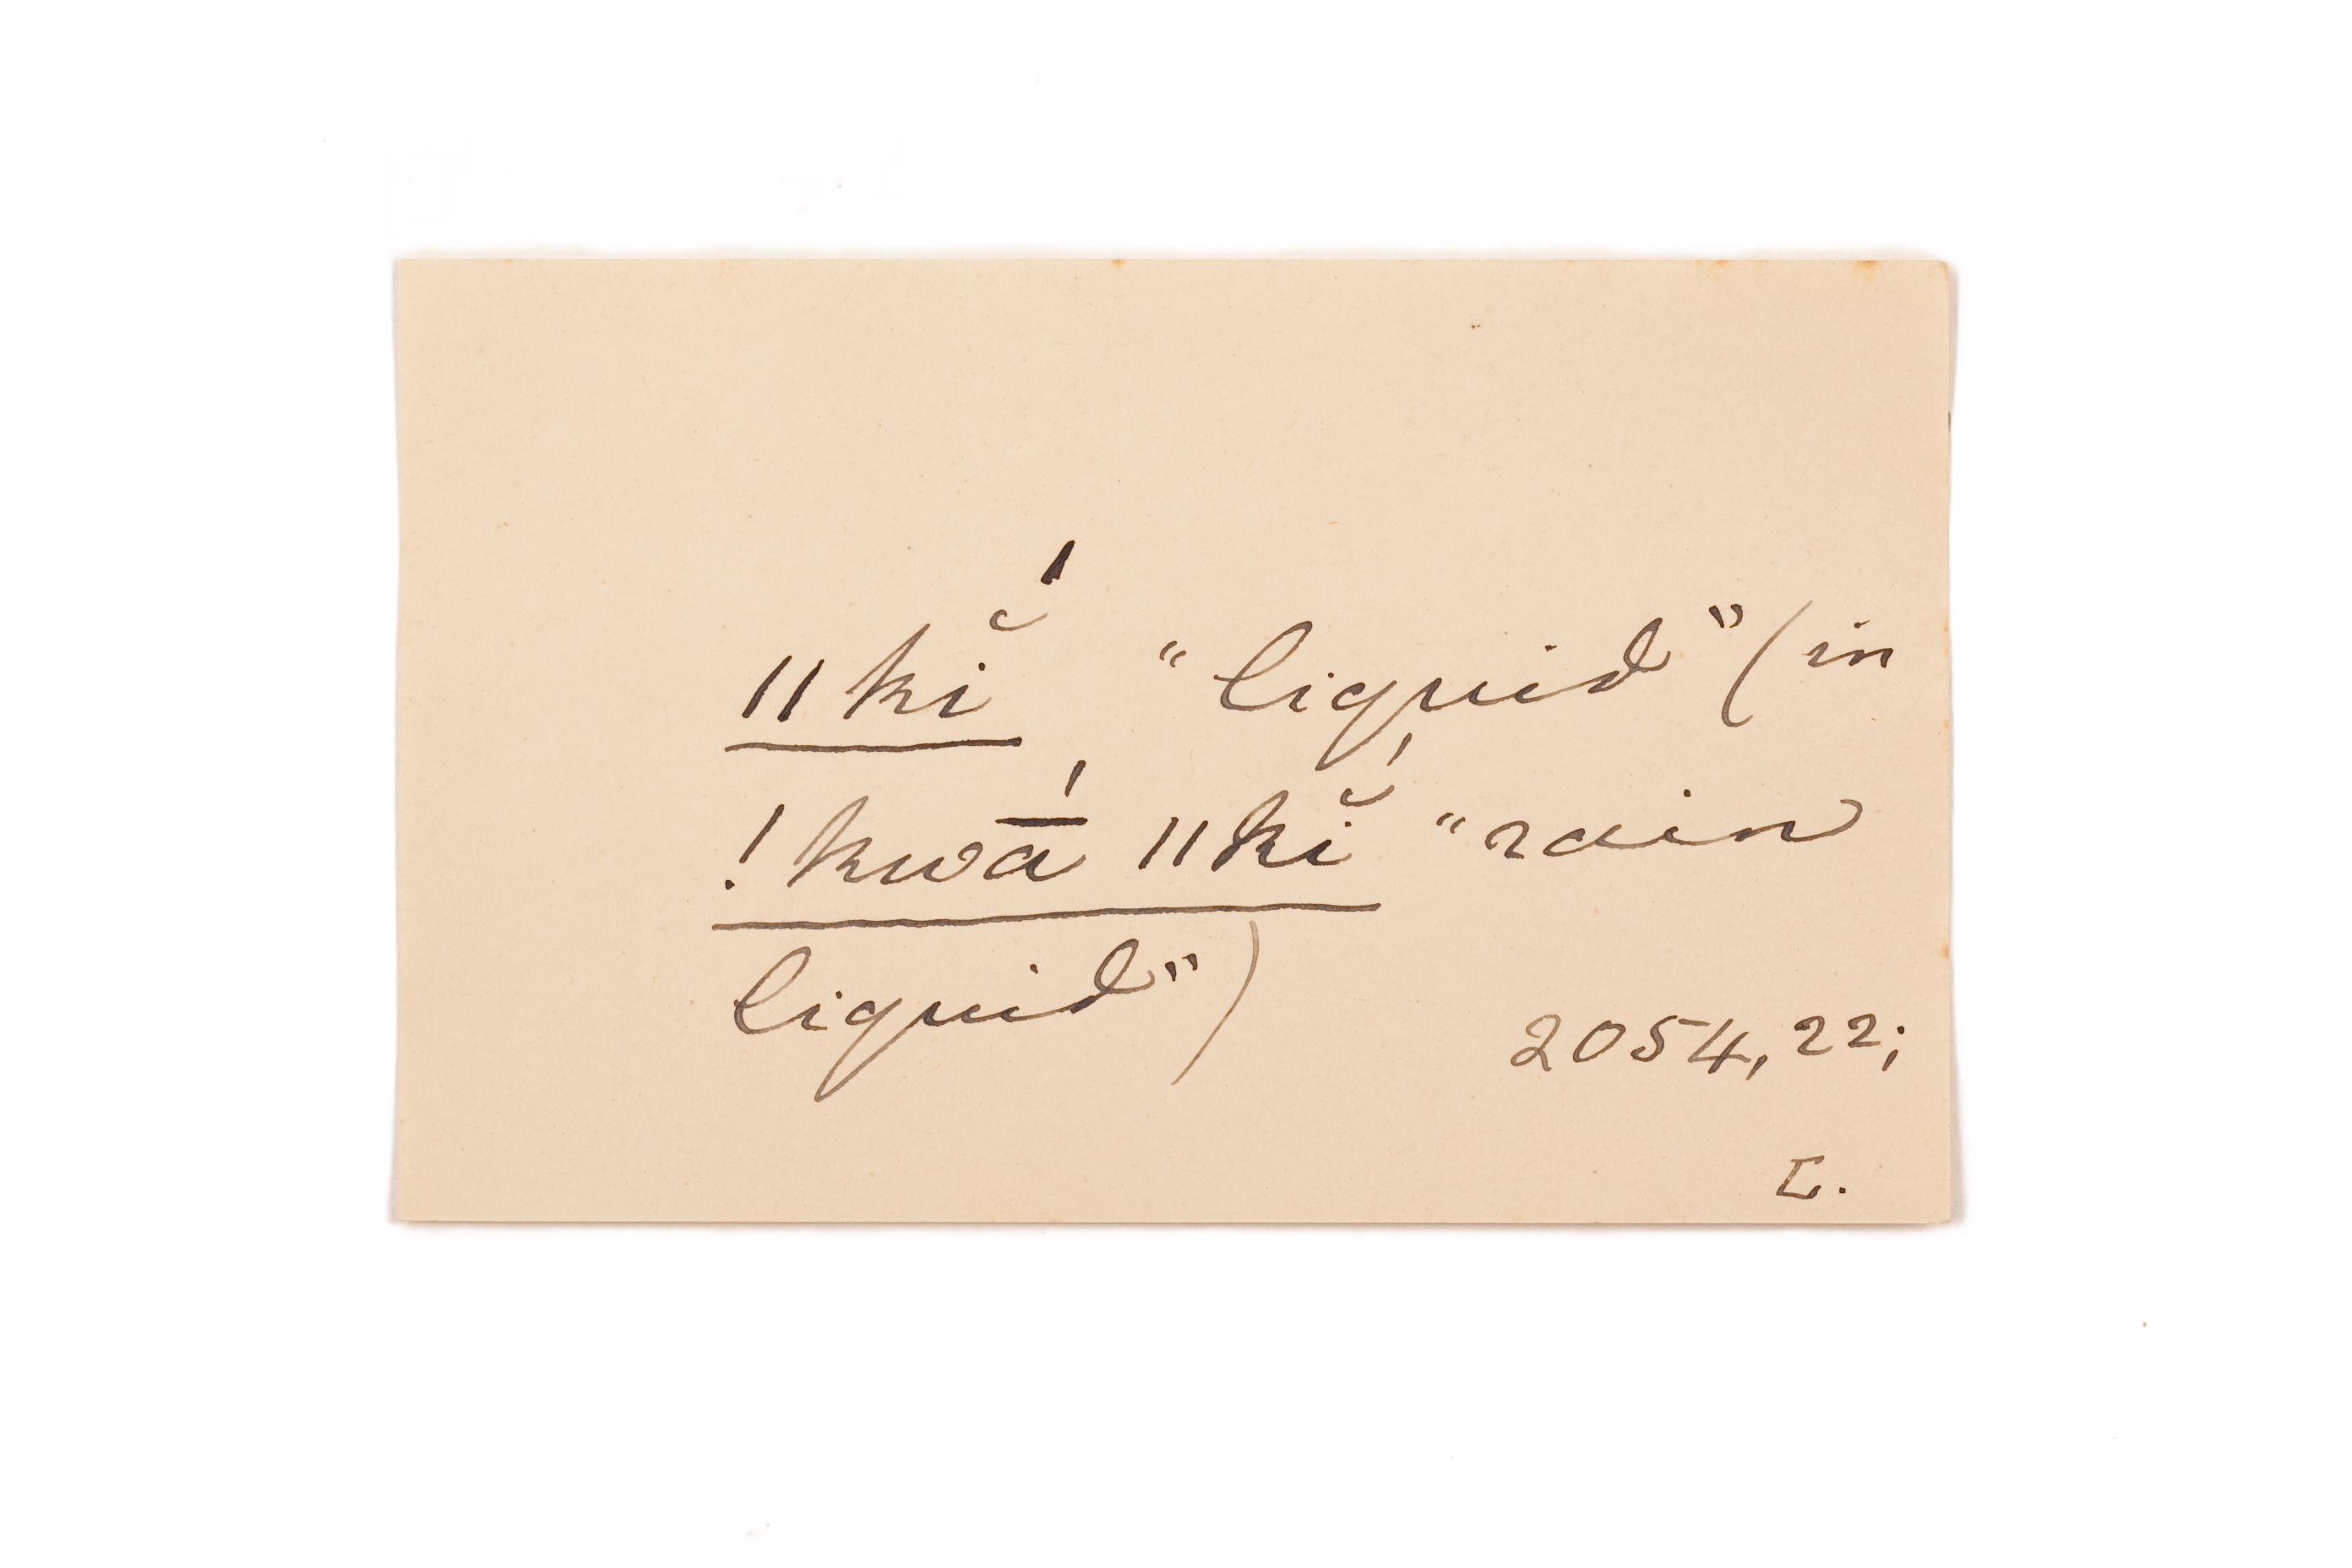 ǁkĭ́ "liquid" (in
!kwā́ ǁkĭ́ "rain
liquid")
2054, 22;
L.